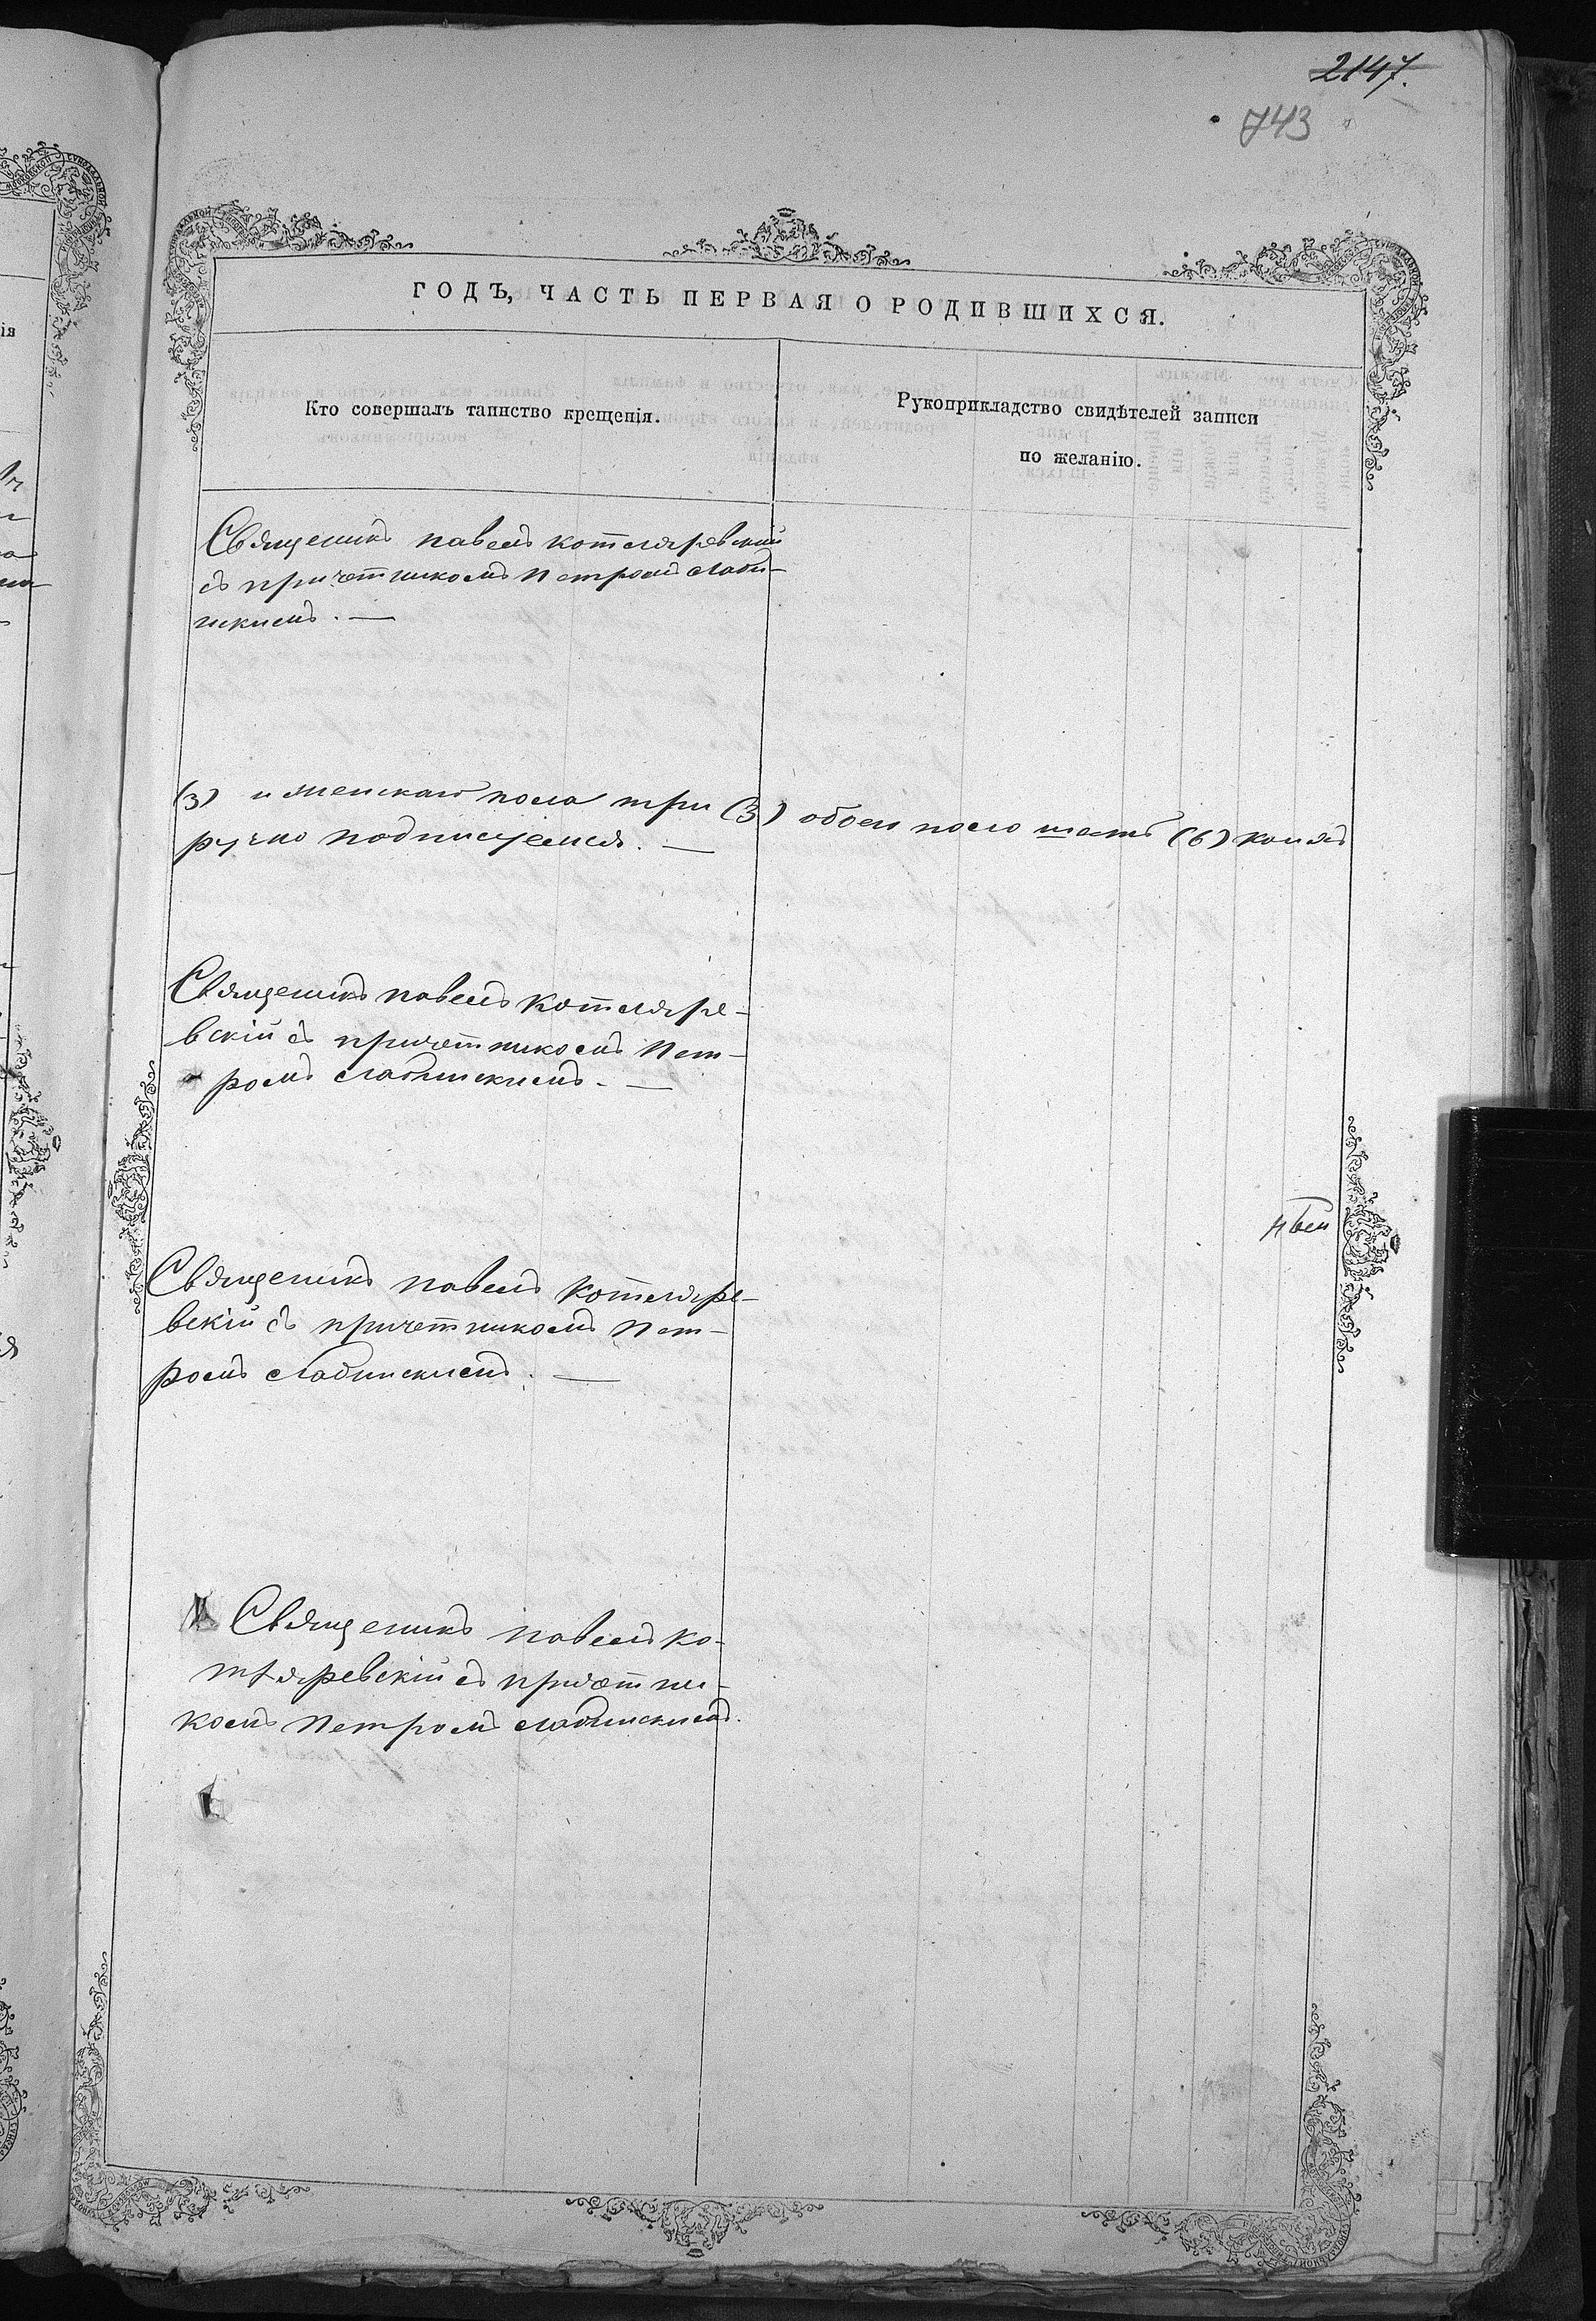 2147.
743
ГОДЪ, ЧАСТЬ ПЕРВАЯ О РОДИВШИХСЯ.
Кто совершалъ таинство крещенія.
Рукоприкладство свидѣтелей записи
по желанію.
Священикъ павелъ котляревский
съ причетникомъ Петромъ слаби-
нскимъ. —
(3) и женскаго пола три (3) обоего поло шесть (6)
ручно подписуемся. —
Священикъ павелъ котляре-
вскій съ причетникомъ Пет-
ромъ слабинскимъ. —
Священикъ павелъ котляре-
вскій съ причетникомъ Пет-
ромъ слабинскимъ. —
Священикъ павелъ ко-
тляревскій съ причетни-
комъ Петромъ слабинскимъ.